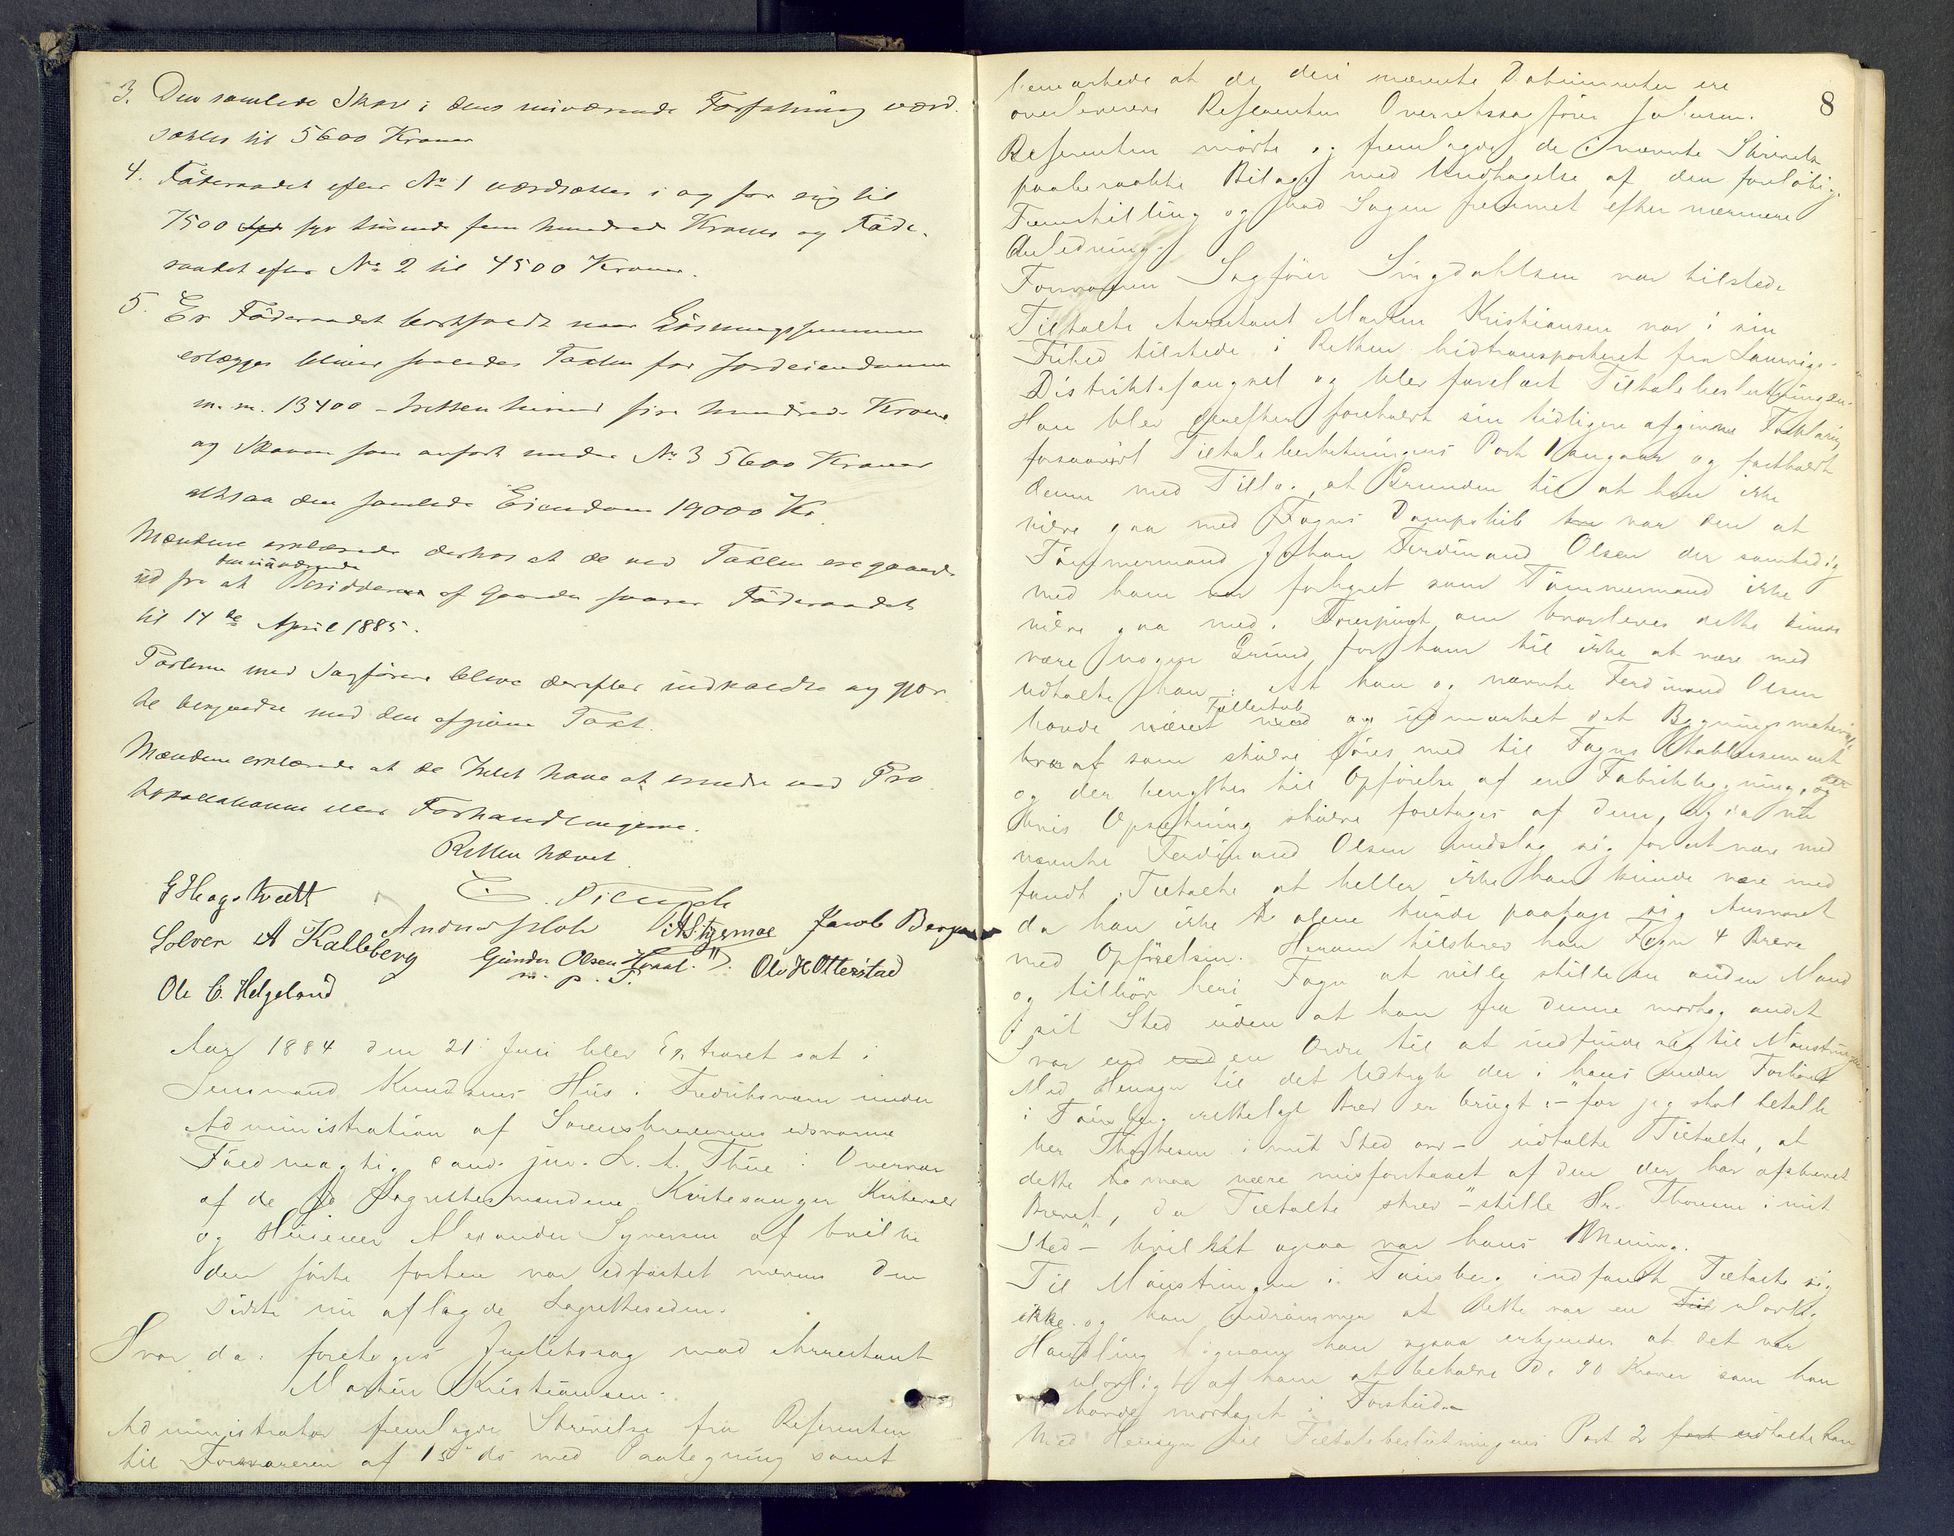 3. Den samlede Skov i dens nuværende Forfatning værd-
sættes til 5600 Kroner
4. Føderaadet efter No 1 værdsættes i og for sig til
7500 syv tusende fem hundrede Kroner og Føde-
raadet efter No 2 til 4500 Kroner.
5. Er Føderaadet bortfaldt naar Løsningssummen
erlægges bliver saaledes Taxten for Jordeiendommen
m. m. 13400 – tretten tusind fire hundrede Kroner
og Skoven som anført under No 3 5600 Kroner
altsaa den samlede Eiendom 19000 Kr.
Mændene erklærede derhos at de ved Taxten ere gaaede
ud fra at den nuværende Besidder af Gaarden svarer Føderaadet
til 14de April 1885.
Parterne med Sagførere bleve derefter indkaldte og gjor-
te bekjendte med den afgivne Taxt.
Mændene erklærede at de Intet have at erindre ved Pro-
tokollationen eller Forhandlingerne.
Retten hævet.
G Haagetvedt
Anders Holt Jacob Bergan
Solver A Kalleberg Gunder Olsen Ole H Otterstad
m. p. P.
Ole C. Helgeland
Aar 1884 den 21 Juli blev Extraret sat i
Lensmand Knudsens Hus i Fredriksværn under
Administration af Sorenskriverens edsvorne
Fuldmægtig cand. jur. L. A. Thue i Overvær
af de to Lagrettesmændene Kirkesanger Kvitevold
og Huseier Alexander Syversen af hvilke
den første forhen var edfæstet mens den
sidste nu aflagde Lagretteseden.
Hvor da: foretoges Justitssag mod Arrestant
Martin Kristiansen.
Administrator fremlagde Skrivelse fra Referenten
til Forsvareren af 15 ds med Paategning samt
8
bemærkede at de deri nævnte Dokumenter ere
overleverede Referenten Overretssagfører Johnsen.
Referenten mødte og fremlagde de i nævnte Skrivelse
paaberaabte Bilage med Undtagelse af den foreløbige
Fremstilling og bad Sagen fremmet efter nærmere
Anledning.
Forsvareren Sagfører Singdahlsen var tilstede
Tiltalte Arrestant Martin Kristiansen var i sin
Frihed tilstede i Retten hidtransporteret fra Laurvigs
Distriktsfængsel og blev forelæst Tiltalebeslutningen.
Han blev derefter foreholdt sin tidligere afgivne Forklaring
forsaavidt Tiltalebeslutningens Post 1 angaar og fastholdt
denne med Tillæg, at Grunden til at han ikke
vilde gaa med Fagns Dampskib var den at
Tømmermand Johan Ferdinand Olsen der samtidig
med ham var forhyret som Tømmermand ikke
vilde gaa med. Forespurgt om hvorledes dette kunde
være nogen Grund for ham til ikke at være med
udtalte han: At han og nævnte Ferdinand Olsen
havde været Fællesskab med og udmærket det Bygningsmateriale
hvoraf som skulde føres med til Fagns Etablissement
og der benyttes til Opførelse af en Fabrikbygning, og
hvis Opsætning skulde foretages af dem, og da nu
nævnte Ferdinand Olsen undslog sig for at være med
fandt Tiltalte at heller ikke han kunde være med
da han ikke alene kunde paatage sig Ansvaret
med Opførelsen. Herom tilskrev han Fagn 4 Breve
og tilbød heri Fagn at ville stille en anden Mand
i sit Sted uden at han fra denne modtog andet
Svar end en Ordre til at indfinde sig til Mønstringen
Med Hensyn til det Udtryk der i hans under Forhøret
i Tønsberg Brev er brugt: "for jeg skal betale
her Thoresen i mit Sted" – udtalte Tiltalte, at
dette maa være misforstaaet af den der har afskrevet
Brevet, da Tiltalte skrev "stille Hr. Thoresen i mit
Sted" – hvilket ogsaa var hans Mening.
Til Mønstringen i Tønsberg indfandt Tiltalte sig
ikke og han indrømmer at dette var en ulovlig
Handling ligesom han ogsaa erkjender at det var
ulovligt af ham at beholde de 90 Kroner som han
havde modtaget i Forskud.
Med Hensyn til Tiltalebeslutningens Post 2 udtalte han